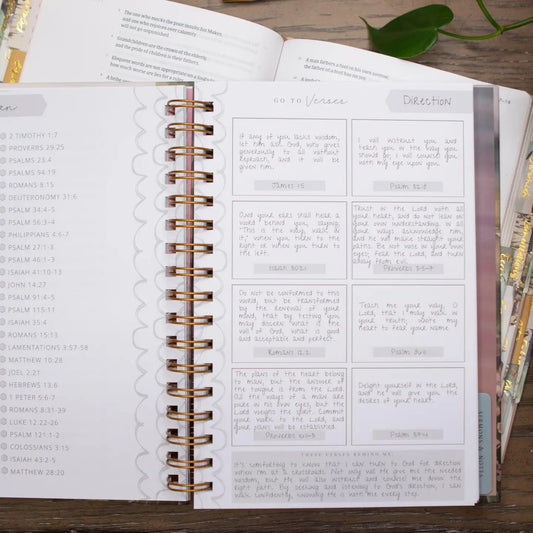 The one who mocks the poor insults his Maker,
and one who rejoices over calamity
Grandchildren are the crown of the elderly,
and the pride of children is their fathers.
Eloquent words are not appropriate on
how much worse are lies for a ruler
2 TIMOTHY 1:7
PROVERBS 29:25
PSALM 23:4
PSALM 94:19
ROMANS 8:15
DEUTERONOMY 31:6
PSALM 34:4-5
PSALM 56:3-4
PHILIPPIANS 4:6-7
PSALM 27:1-3
PSALM 46:1-3
ISAIAH 41:10-13
JOHN 14:27
PSALM 91:4-5
PSALM 115:11
ISAIAH 35:4
ROMANS 15:13
LAMENTATIONS 3:57-58
MATTHEW 10:28
JOEL 2:21
HEBREWS 13:6
1 PETER 5:6-7
ROMANS 8:31-39
LUKE 12:22-26
PSALM 121:1-2
COLOSSIANS 3:15
ISAIAH 43:2-5
MATTHEW 28:20
GO TO Verses
Direction
If any of you lacks wisdom,
let him ask God, who gives
generously to all without
reproach, and it will be
given him.
James 1:5
I will instruct you and
teach you in the way you
should go; I will counsel you
with my eye upon you.
Psalm 32:8
And your ears shall hear a
word behind you, saying,
"This is the way, walk in
it," when you turn to the
right or when you turn to
the left.
Isaiah 30:21
Trust in the Lord with all
your heart, and do not lean on
your own understanding. In all
your ways acknowledge him,
and he will make straight your
paths. Be not wise in your own
eyes; fear the Lord, and turn
away from evil.
Proverbs 3:5-7
Do not be conformed to this
world, but be transformed
by the renewal of your
mind, that by testing you
may discern what is the
will of God, what is good
and acceptable and perfect.
Romans 12:2
Teach me your way, O
Lord, that I may walk in
your truth; unite my
heart to fear your name.
Psalm 86:11
The plans of the heart belong
to man, but the answer of
the tongue is from the Lord.
All the ways of a man are
pure in his own eyes, but the
Lord weighs the spirit. Commit
your work to the Lord, and
your plans will be established.
Proverbs 16:1-3
Delight yourself in the Lord,
and he will give you the
desires of your heart.
Psalm 37:4
THESE VERSES REMIND ME...
It's comforting to know that I can turn to God for direction
when I'm at a crossroads. Not only will He give me the needed
wisdom, but He will also instruct and counsel me down the
right path. By seeking and listening to God's direction, I can
walk confidently, knowing He is with me every step.
SERMONS & NOTES